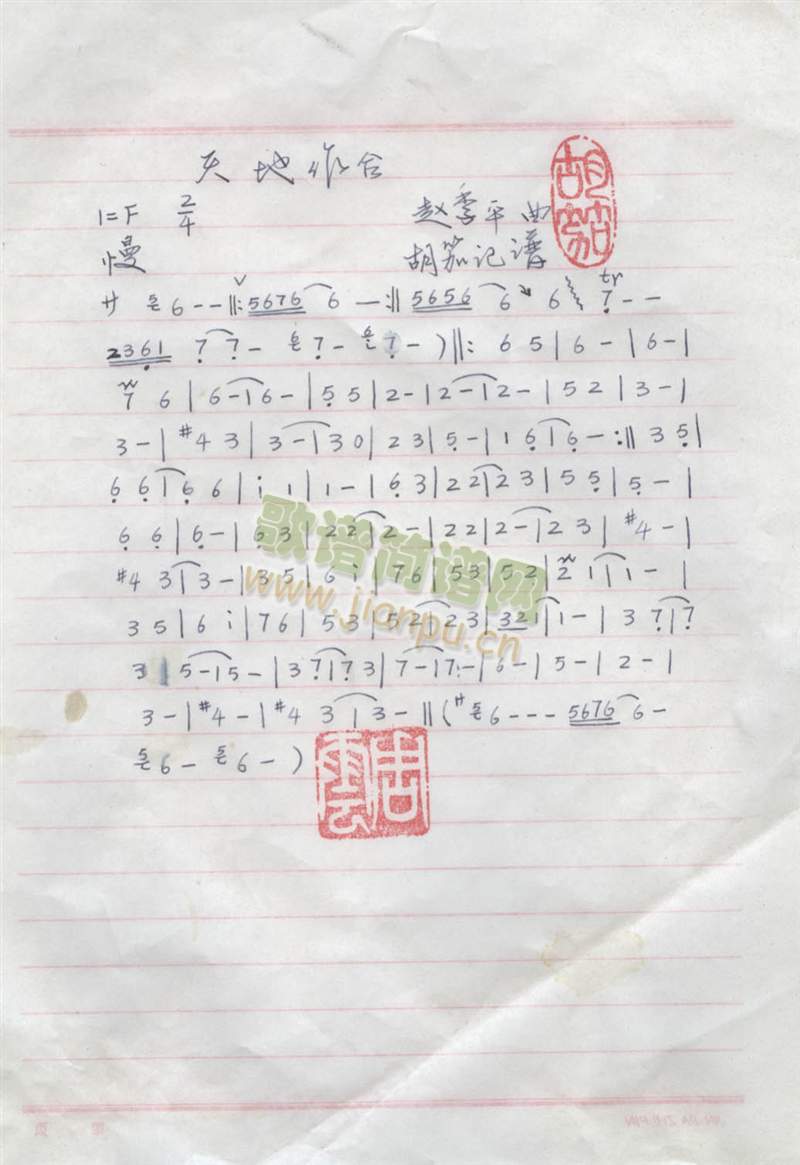 天地作合
胡笳
1=F 2/4 赵季平 曲
慢 胡笳记谱
サ 5 6 - - ‖: 5676 6 — :‖ 5656 6 6 7 - - tr
2361 7 7 - 6 7 - 6 7 - ) ‖: 6 5 | 6 - | 6 - |
7 6 | 6 - | 6 - | 5 5 | 2 - | 2 - | 2 - | 5 2 | 3 - |
3 - | #4 3 | 3 - | 3 0 | 2 3 | 5 - | 1 6 | 6 - :‖ 3 5 |
6 6 | 6 6 | i 1 | 1 - | 6 3 | 2 2 | 2 3 | 5 5 | 5 - |
6 6 | 6 - | 6 3 | 2 2 | 2 - | 2 2 | 2 - | 2 3 | #4 - |
#4 3 | 3 - | 3 5 | 6 i | 7 6 | 5 3 | 5 2 | 2 1 | 1 - |
3 5 | 6 i | 7 6 | 5 3 | 5 2 | 2 3 | 3 2 1 | 1 - | 3 7 | 7
3 | 5 - | 5 - | 3 7 | 7 3 | 7 - | 7 - | 6 - | 5 - | 2 - |
3 - | #4 - | #4 3 | 3 - ‖ ( サ 5 6 - - - 5676 6 -
5 6 - 5 6 - )
歌谱简谱网
www.jianpu.cn